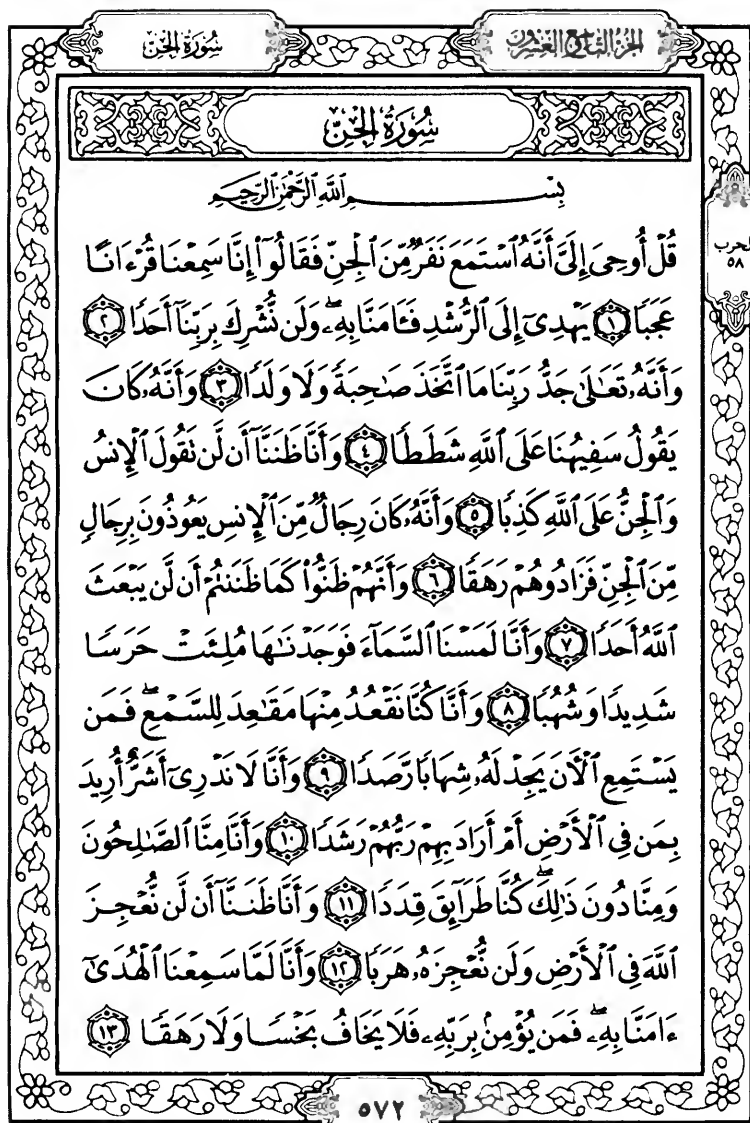 سُورَةُ الجِنّ
الجُزْءُ التَّاسِعُ وَالْعِشْرُونَ
سُورَةُ الجِنِّ
بِسْمِ ٱللَّهِ ٱلرَّحْمَٰنِ ٱلرَّحِيمِ
قُلْ أُوحِىَ إِلَىَّ أَنَّهُ ٱسْتَمَعَ نَفَرٌ مِّنَ ٱلْجِنِّ فَقَالُوٓا۟ إِنَّا سَمِعْنَا قُرْءَانًا
الحزب
٥٨
عَجَبًا ١ يَهْدِىٓ إِلَى ٱلرُّشْدِ فَـَٔامَنَّا بِهِۦ ۖ وَلَن نُّشْرِكَ بِرَبِّنَآ أَحَدًا ٢
وَأَنَّهُۥ تَعَٰلَىٰ جَدُّ رَبِّنَا مَا ٱتَّخَذَ صَٰحِبَةً وَلَا وَلَدًا ٣ وَأَنَّهُۥ كَانَ
يَقُولُ سَفِيهُنَا عَلَى ٱللَّهِ شَطَطًا ٤ وَأَنَّا ظَنَنَّآ أَن لَّن تَقُولَ ٱلْإِنسُ
وَٱلْجِنُّ عَلَى ٱللَّهِ كَذِبًا ٥ وَأَنَّهُۥ كَانَ رِجَالٌ مِّنَ ٱلْإِنسِ يَعُوذُونَ بِرِجَالٍ
مِّنَ ٱلْجِنِّ فَزَادُوهُمْ رَهَقًا ٦ وَأَنَّهُمْ ظَنُّوا۟ كَمَا ظَنَنتُمْ أَن لَّن يَبْعَثَ
ٱللَّهُ أَحَدًا ٧ وَأَنَّا لَمَسْنَا ٱلسَّمَآءَ فَوَجَدْنَٰهَا مُلِئَتْ حَرَسًا
شَدِيدًا وَشُهُبًا ٨ وَأَنَّا كُنَّا نَقْعُدُ مِنْهَا مَقَٰعِدَ لِلسَّمْعِ ۖ فَمَن
يَسْتَمِعِ ٱلْـَٔانَ يَجِدْ لَهُۥ شِهَابًا رَّصَدًا ٩ وَأَنَّا لَا نَدْرِىٓ أَشَرٌّ أُرِيدَ
بِمَن فِى ٱلْأَرْضِ أَمْ أَرَادَ بِهِمْ رَبُّهُمْ رَشَدًا ١٠ وَأَنَّا مِنَّا ٱلصَّٰلِحُونَ
وَمِنَّا دُونَ ذَٰلِكَ ۖ كُنَّا طَرَآئِقَ قِدَدًا ١١ وَأَنَّا ظَنَنَّآ أَن لَّن نُّعْجِزَ
ٱللَّهَ فِى ٱلْأَرْضِ وَلَن نُّعْجِزَهُۥ هَرَبًا ١٢ وَأَنَّا لَمَّا سَمِعْنَا ٱلْهُدَىٰٓ
ءَامَنَّا بِهِۦ ۖ فَمَن يُؤْمِنۢ بِرَبِّهِۦ فَلَا يَخَافُ بَخْسًا وَلَا رَهَقًا ١٣
٥٧٢